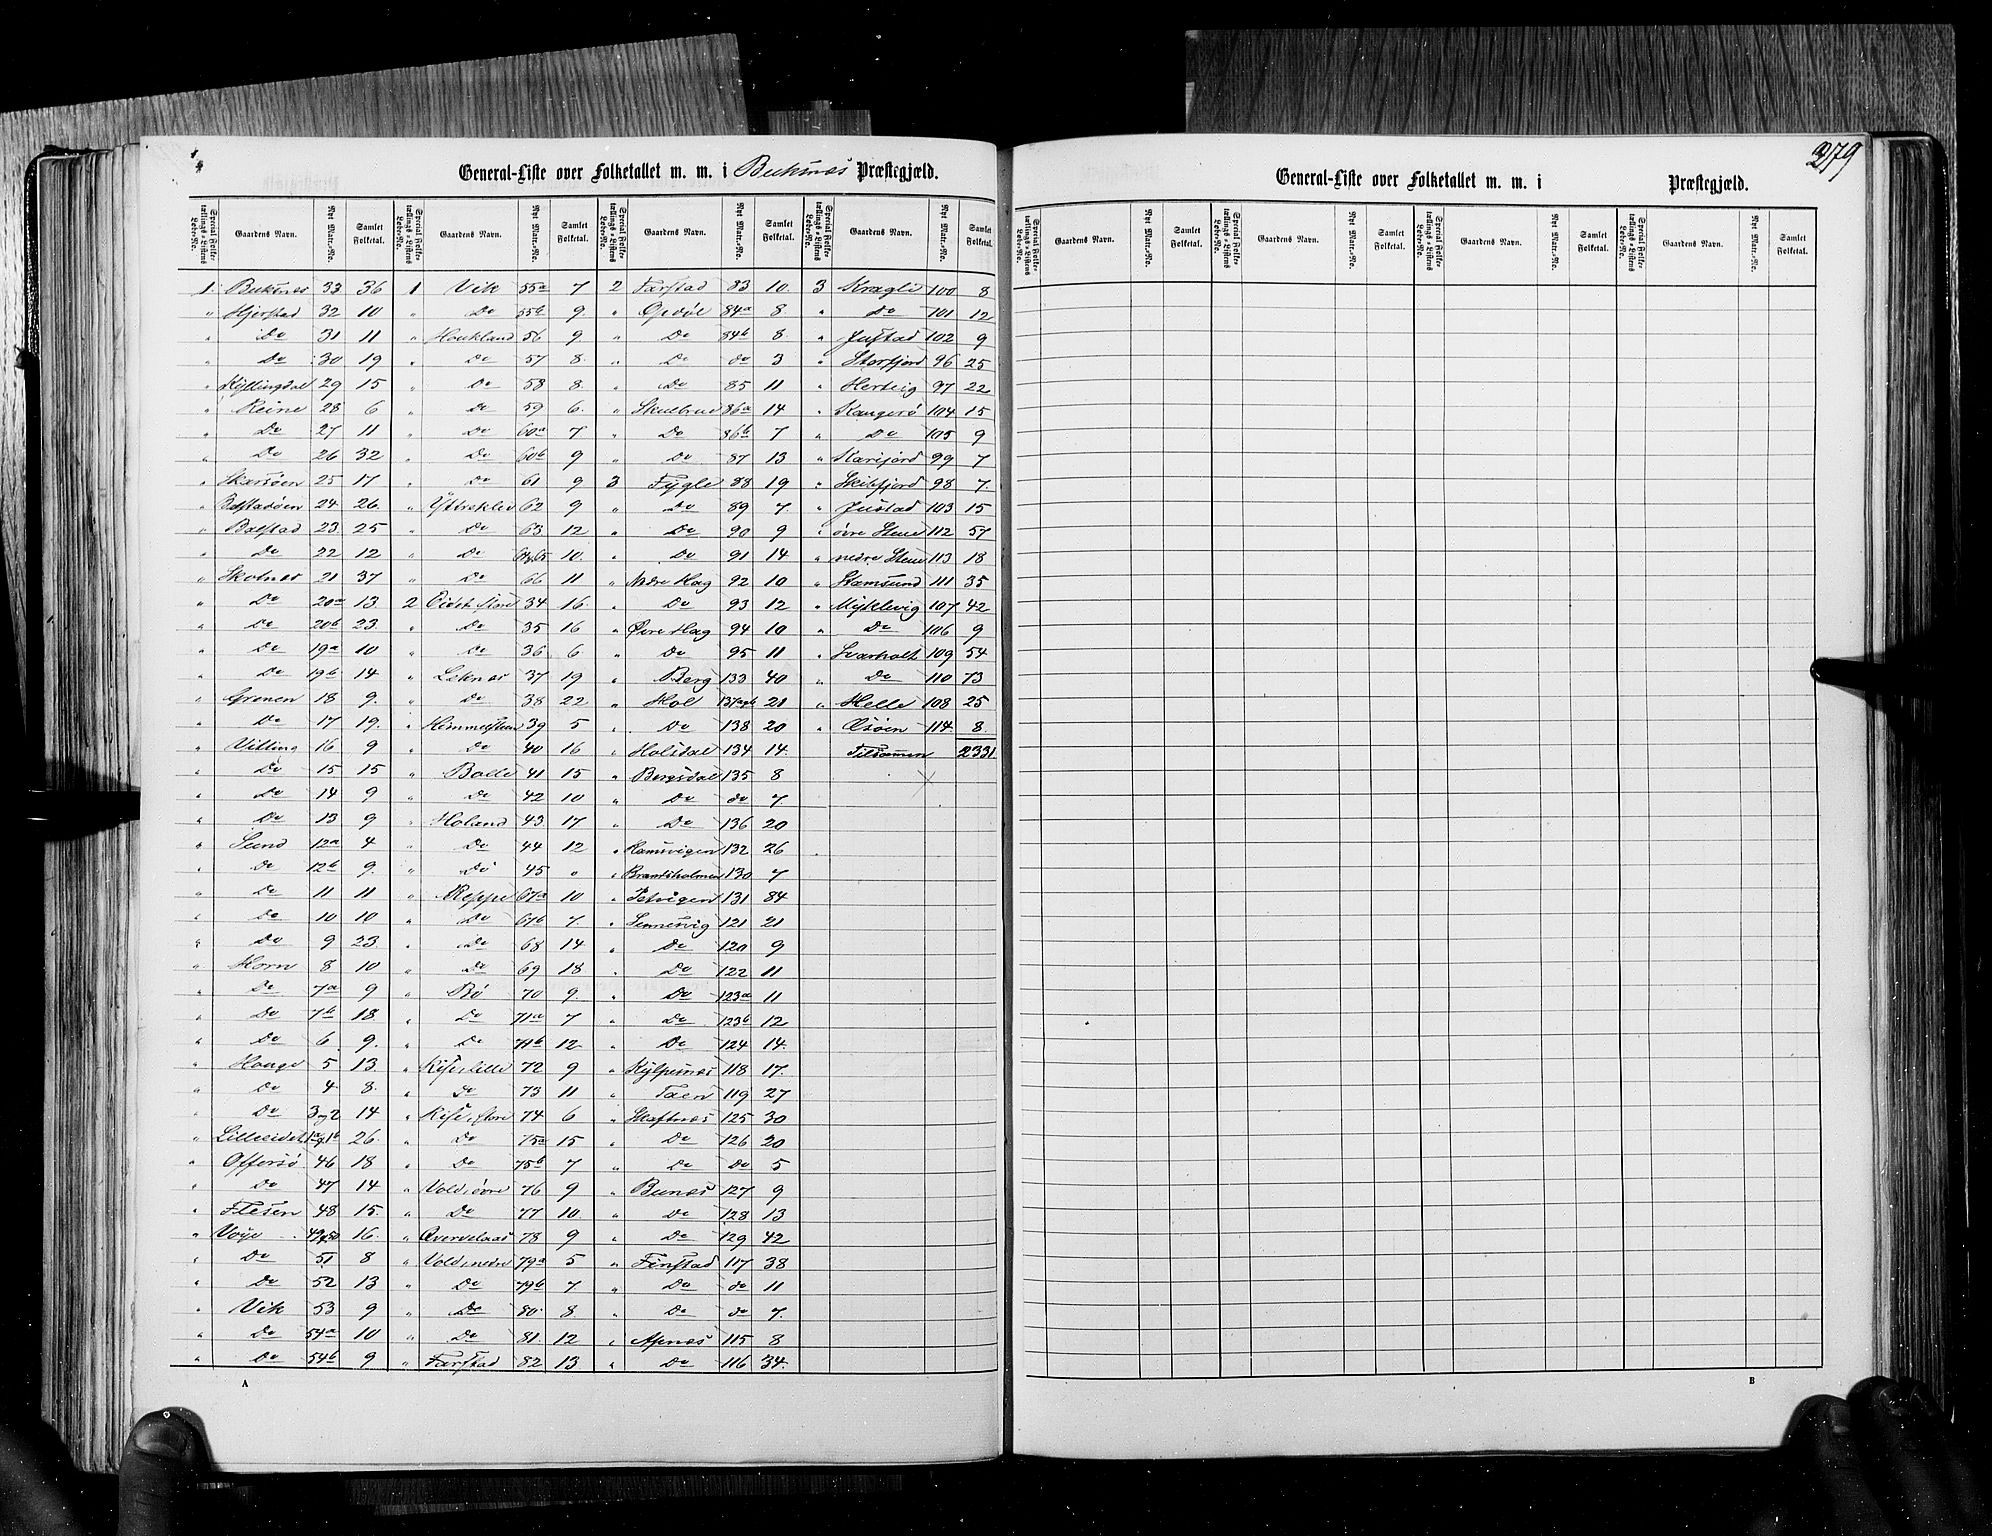 General-Liste over Folketallet m. m. i Buksnæs Præstegjæld.
Special Folketællings-Listens Løbe-No. Gaardens Navn. Nyt Matr.-No. Samlet Folketal.
1. Buksnæs 33 36
" Hjerstad 32 10
" Do 31 11
" Do 30 19
" Kyllingdal 29 15
" Reine 28 6
" Do 27 11
" Do 26 32
" Skarsøen 25 17
" Balstadøen 24 26.
" Balstad 23 25
" Do 22 12
" Skotnæs 21 37
" Do 20a 13.
" Do 20b 23
" Do 19a 10
" Do 19b 14
" Grønen 18 9.
" Do 17 19.
" Vitting 16 9
" Do 15 15
" Do 14 9
" Do 13 9
" Sund 12a 4
" Do 12b 9.
" Do 11 11
" Do 10 10
" Do 9 23
" Horn 8 10
" Do 7a 9
" Do 7b 18
" Do 6 9.
" Hauge 5 13
" Do 4 8.
" Do 3 og 2 14
" Lilleeidet 1a og 1b 26.
" Offersø 46 18
" Do 47 14
" Flesen 48 15.
" Voje 49 og 50 16.
" Do 51 8
" Do 52 13
" Vik 53 9
" Do 54a 10
" Do 54b 9
Special Folketællings-Listens Løbe-No. Gaardens Navn. Nyt Matr.-No. Samlet Folketal.
1 Vik 55a 7
" Do 55b 9.
" Houkland 56 9
" Do 57 8.
" Do 58 8.
" Do 59 6.
" Do 60a 7
" Do 60b 9
" Do 61 9
" Yttreklev 62 9
" Do 63 12
" Do 64 og 65 10.
" Do 66 11
2 Eidet, store 34 16.
" Do 35 16
" Do 36 6
" Leknæs 37 19
" Do 38 22
" Himmelsteen 39 5
" Do 40 16
" Balle 41 15
" Do 42 10
" Holand 43 17
" Do 44 12
" Do 45 "
" Reppe 67a 10
" Do 67b 7.
" Do 68 14
" Do 69 18
" Bø 70 9.
" Do 71a 7
" Do 71b 12
" Rise, lille 72 9
" Do 73 11
" Rise, store 74 6
" Do 75a 15
" Do 75b 7
" Vold, øvre 76 9
" Do 77 10.
" Ververlaas 78 9
" Vold, nedre 79a 5
" Do 79b 7.
" Do 80 8.
" Do 81 12
" Farstad 82 13
Special Folketællings-Listens Løbe-No. Gaardens Navn. Nyt Matr.-No. Samlet Folketal.
2 Farstad 83 10.
" Opdøl 84a 8.
" Do 84b 8.
" Do do 3
" Do 85 11
" Skulbru 86a 14
" Do 86b 7
" Do 87 13
3 Fygle 88 19
" Do 89 7.
" Do 90 9
" Do 91 14
" Nedre Hag 92 10
" Do 93 12
" Øvre Hag 94 10
" Do 95 11
" Berg 133 40
" Hol 137a og b 21
" Do 138 20
" Holsdal 134 14.
" Bergsdal 135 8
" Do do 7
" Do 136 20
" Ramsvigen 132 26
" Brandsholmen 130 7
" Petvigen 131 84
" Sennesvig 121 21
" Do 120 9
" Do 122 11
" Do 123a 11
" Do 123b 12
" Do 124 14.
" Kylpesnæs 118 17.
" Taen 119 27
" Skaftnæs 125 30
" Do 126 20
" Do do 5
" Bunæs 127 9
" Do 128 13
" Do 129 42
" Finstad 117 38
" Do do 11
" Do do 7.
" Apnæs 115 8
" Do 116 34.
Special Folketællings-Listens Løbe-No. Gaardens Navn. Nyt Matr.-No. Samlet Folketal.
3 Kragli 100 8
" Do 101 12
" Justad 102 9
" Storfjord 96 25
" Hertvig 97 22
" Kangerø 104 15
" Do 105 9
" Karijord 99 7
" Skitfjord 98 7.
" Justad 103 15
" øvre Stene 112 57
" nedre Stene 113 18
" Stamsund 111 35
" Myklevig 107 42
" Do 106 9
" Svarholt 109 54
" Do 110 73
" Helle 108 25
" Æsøen 114 8.
Tilsammen 2331
A
379
General-Liste over Folketallet m. m. i Præstegjæld.
Special Folketællings-Listens Løbe-No. Gaardens Navn. Nyt Matr.-No. Samlet Folketal.
Special Folketællings-Listens Løbe-No. Gaardens Navn. Nyt Matr.-No. Samlet Folketal.
Special Folketællings-Listens Løbe-No. Gaardens Navn. Nyt Matr.-No. Samlet Folketal.
Special Folketællings-Listens Løbe-No. Gaardens Navn. Nyt Matr.-No. Samlet Folketal.
B